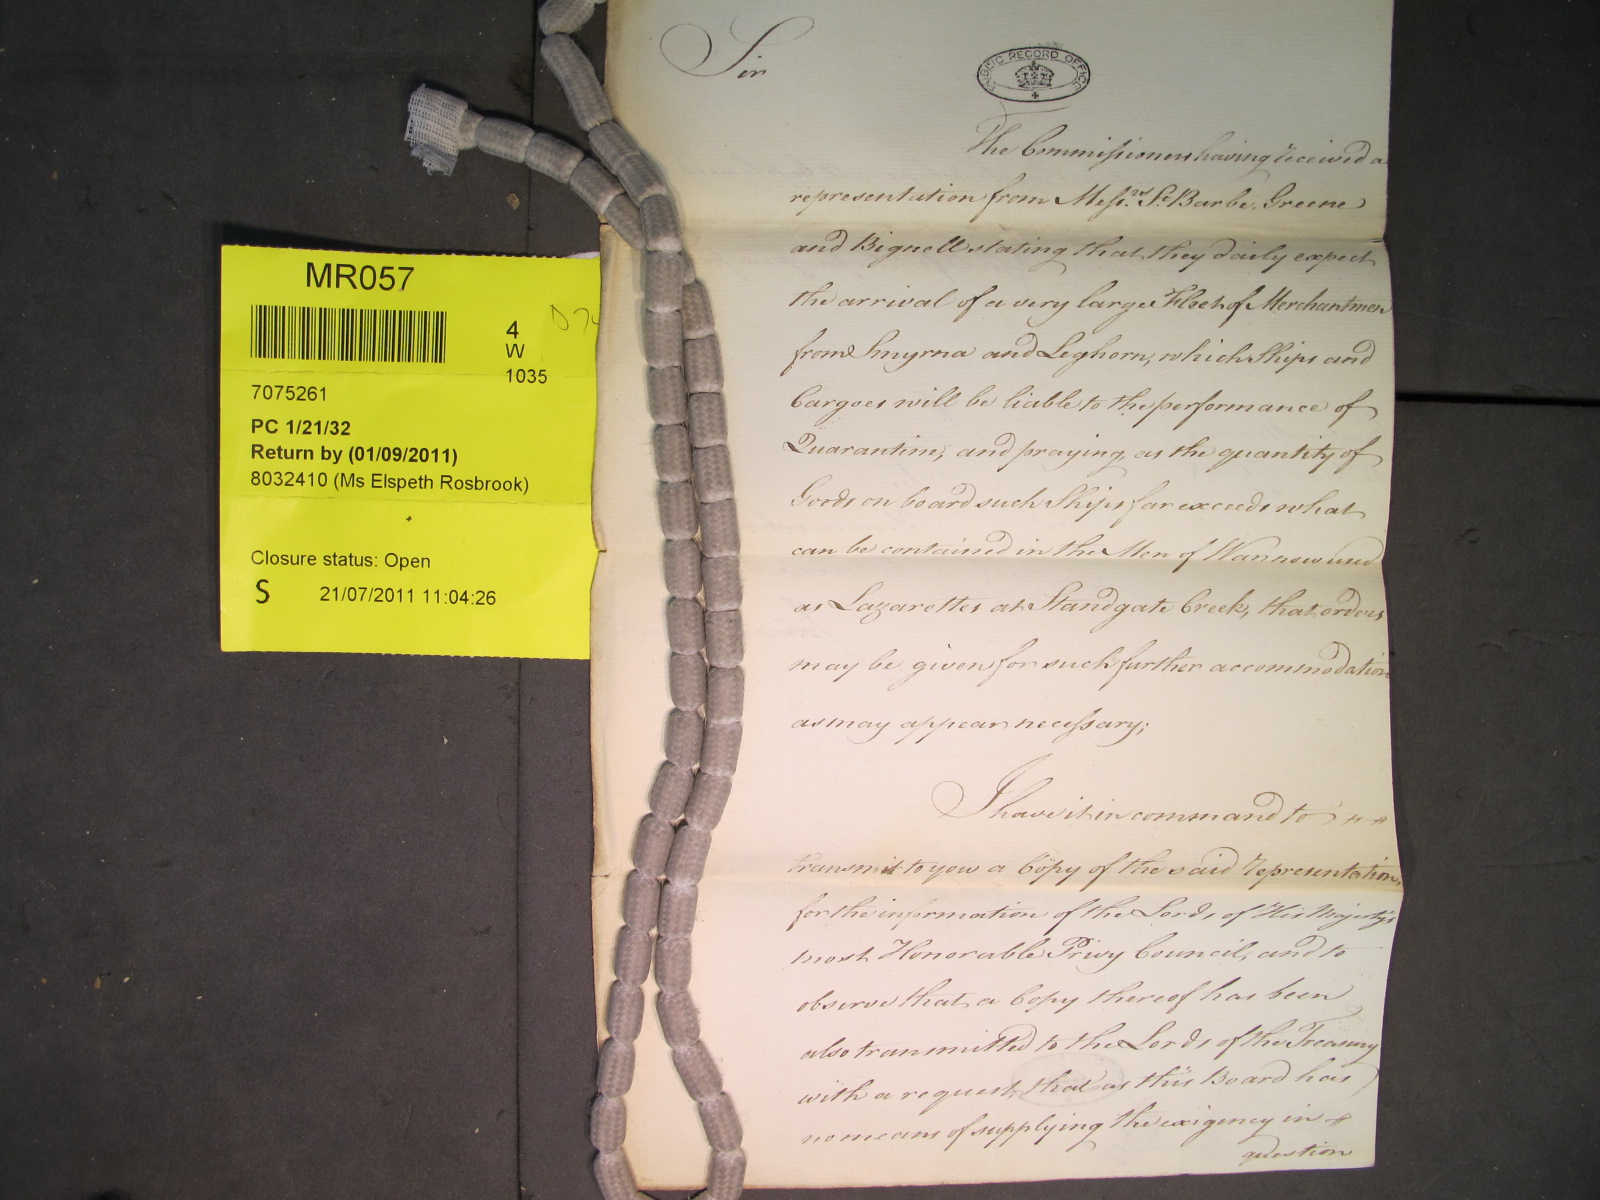 MR057
4
W
1035
7075261
PC 1/21/32
Return by (01/09/2011)
8032410 (Ms Elspeth Rosbrook)
Closure status: Open
S 21/07/2011 11:04:26
PUBLIC RECORD OFFICE
Sir
The Commissioners having received a
representation from Messrs. St. Barbe, Greene
and Bignell stating that they daily expect
the arrival of a very large Fleet of Merchantmen
from Smyrna and Leghorn, which Ships and
Cargoes will be liable to the performance of
Quarantine, and praying, as the quantity of
Goods on board such Ships far exceeds what
can be contained in the Men of War now used
as Lazarettes at Standgate Creek, that orders
may be given for such further accommodation
as may appear necessary;
I have it in command to
transmit to you a Copy of the said representation,
for the information of the Lords of His Majesty's
most Honorable Privy Council, and to
observe that a Copy thereof has been
also transmitted to the Lords of the Treasury
with a request, that as this Board has
no means of supplying the exigency in
question